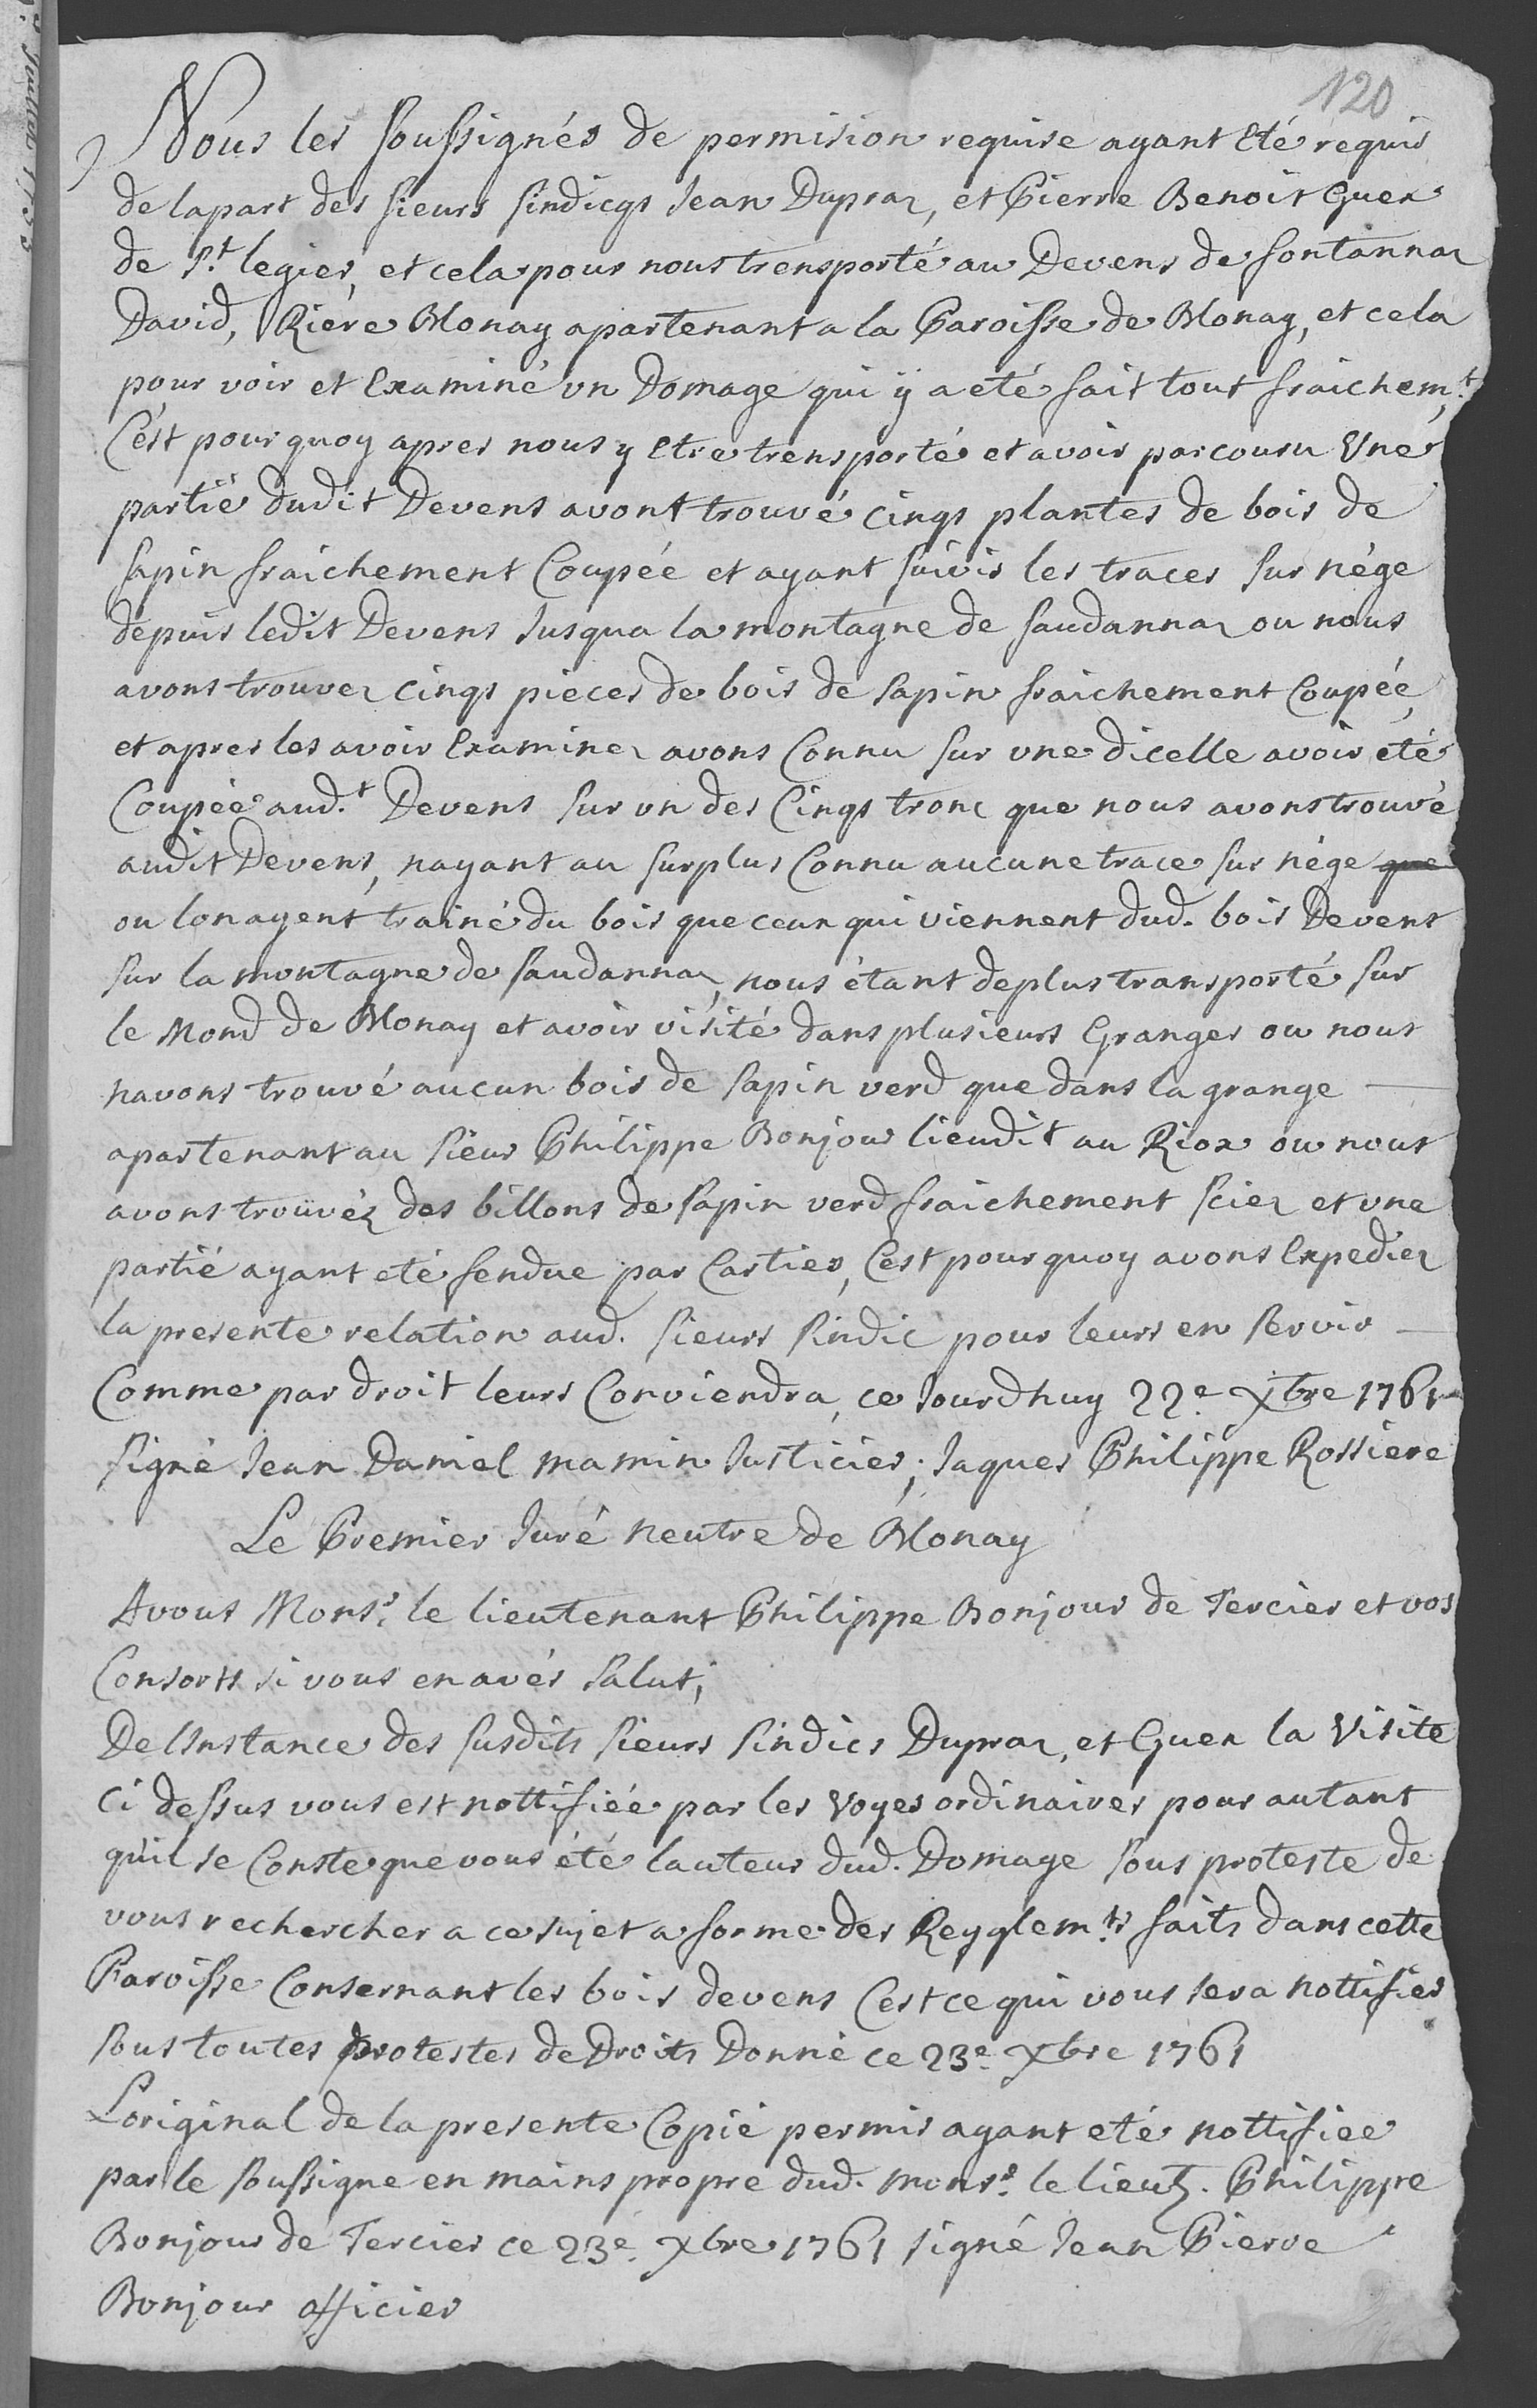 120
Nous les soussignés de permision requise ayant été requis
de la part des sieurs sindicqs Jean Dupraz, et Pierre Benoit Guex
de St. legier, et cela pour nous trensporté au Devens de fontannaz
David, Riére Blonay apartenant a la Paroisse de Blonay, et cela
pour voir et Examiné un Domage qui ÿ a eté fait tout fraichemt.
C'ést pour quoy apres nous y Etre trensporté et avoir parcouru Une
partie dudit Devens avont trouvé cinqs plantes de bois de
sapin fraichement Coupée et ayant suivis les traces sur nége
depuis ledit Devens Jusqua la montagne de saudannaz ou nous
avons trouvez cinqs pieces de bois de sapin fraichement Coupée,
et apres les avoir Examinez avons Connu sur une dicelle avoir eté
Coupée aud.t Devens sur un des Cinqs tronc que nous avons trouvé
audit Devens, nayant au surplus Connu aucune trace sur nége que
ou lonayent trainé du bois que ceux qui viennent dud. bois Devens
sur la montagne de saudannaz, nous étant de plus transporté sur
le Mond de Blonay et avoir visité dans plusieurs Granges ou nous
navons trouvé aucun bois de sapin verd que dans la grange
apartenant au sieur Philippe Bonjour lieudit au Riox ou nous
avons trouvéz des billons de sapin verd fraichement sciez et une
partie ayant eté fendue par Cartier, C'est pourquoy avons Expediez
la presente relation aud. sieurs sindic pour leurs en servir
Comme par droit leurs Conviendra, ce Jourdhuy 22e. Xbre 1761
signé Jean Daniel mamin Justicier; Jaques Philippe Rossiere
Le Premier Juré neutre de Blonay
A vous Monsr. le lieutenant Philippe Bonjour de Tercier et vos
Consorts si vous en avés salut;
De lInstance des susdits sieurs sindics Dupraz, et Guex la Visite
Ci dessus vous est nottifiée par les Voyes ordinaires pour autant
qu'il se Conste que vous été lauteur dud. Domage sous proteste de
vous rechercher a ce sujet a forme des Reyglemts. faits dans cette
Paroisse Consernant les bois devens C'est ce qui vous sera nottifier
sous toutes protestes de Droits Donné ce 23e. Xbre 1761
Loriginal de la presente Copie permis ayant eté nottifiee
par le soussigne en mains propre dud. monsr. le lieut. Philippe
Bonjour de Tercier ce 23e. Xbre 1761 signé Jean Pierre
Bonjour officier